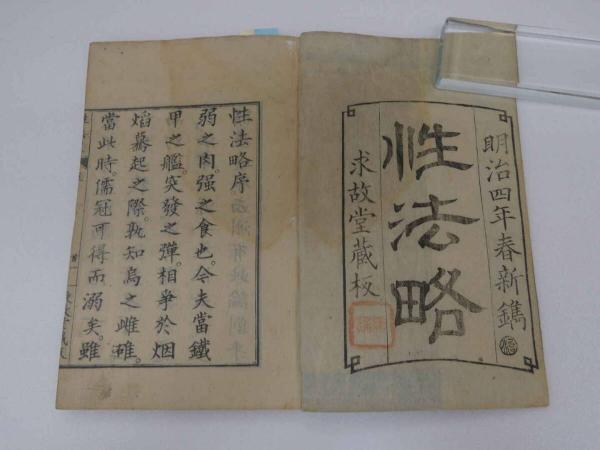 明治四年春新鐫
性法略
求故堂蔵板
性法略序
弱之肉。强之食也。今夫當鐵
甲之艦。突發之彈。相爭於烟
焰驀起之際。孰知烏之雌雄。
當此時。儒冠可得而溺矣。雖